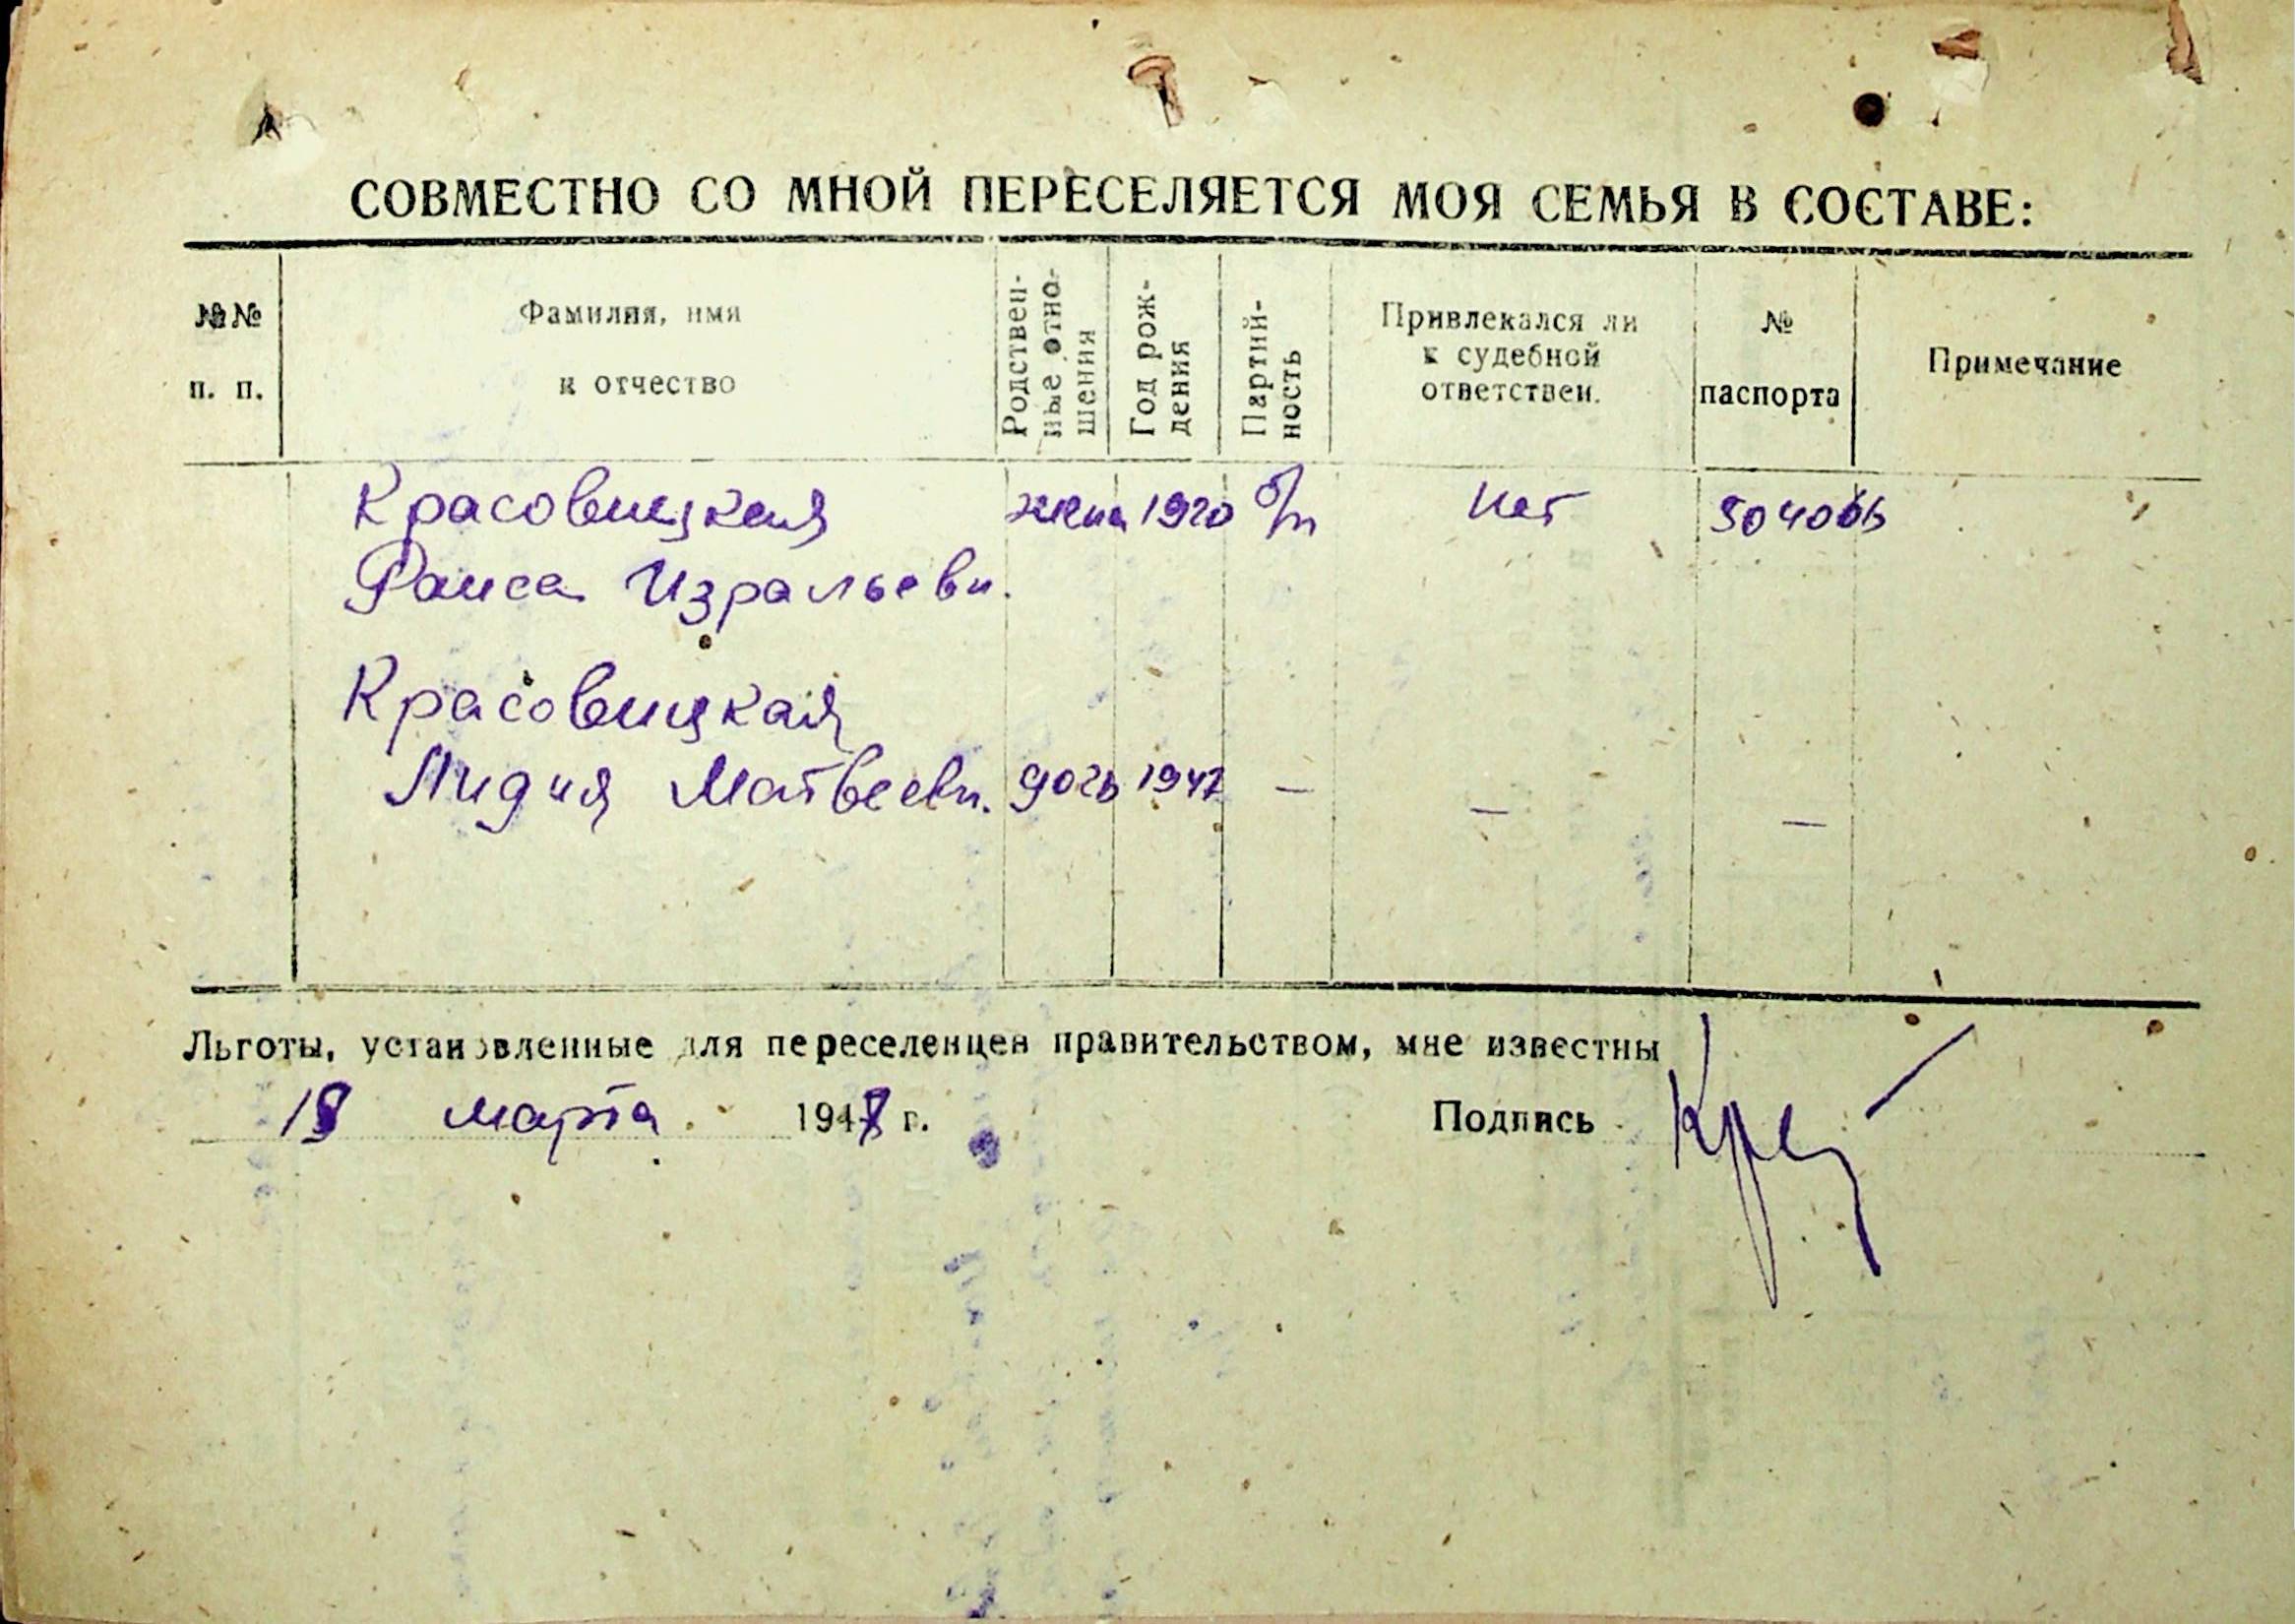 СОВМЕСТНО СО МНОЙ ПЕРЕСЕЛЯЕТСЯ МОЯ СЕМЬЯ В СОСТАВЕ:
№№ п. п.
Фамилия, имя и отчество
Родствен-ные отно-шения
Год рож-дения
Партий-ность
Привлекался ли к судебной ответствен.
№ паспорта
Примечание
Красовицкая жена 1920 б/п Нет 504006
Раиса Изральевн.
Красовицкая
Лидия Матвеевн. дочь 1947 — — —
Льготы, установленные для переселенцев правительством, мне известны
марта 1948 г. Подпись